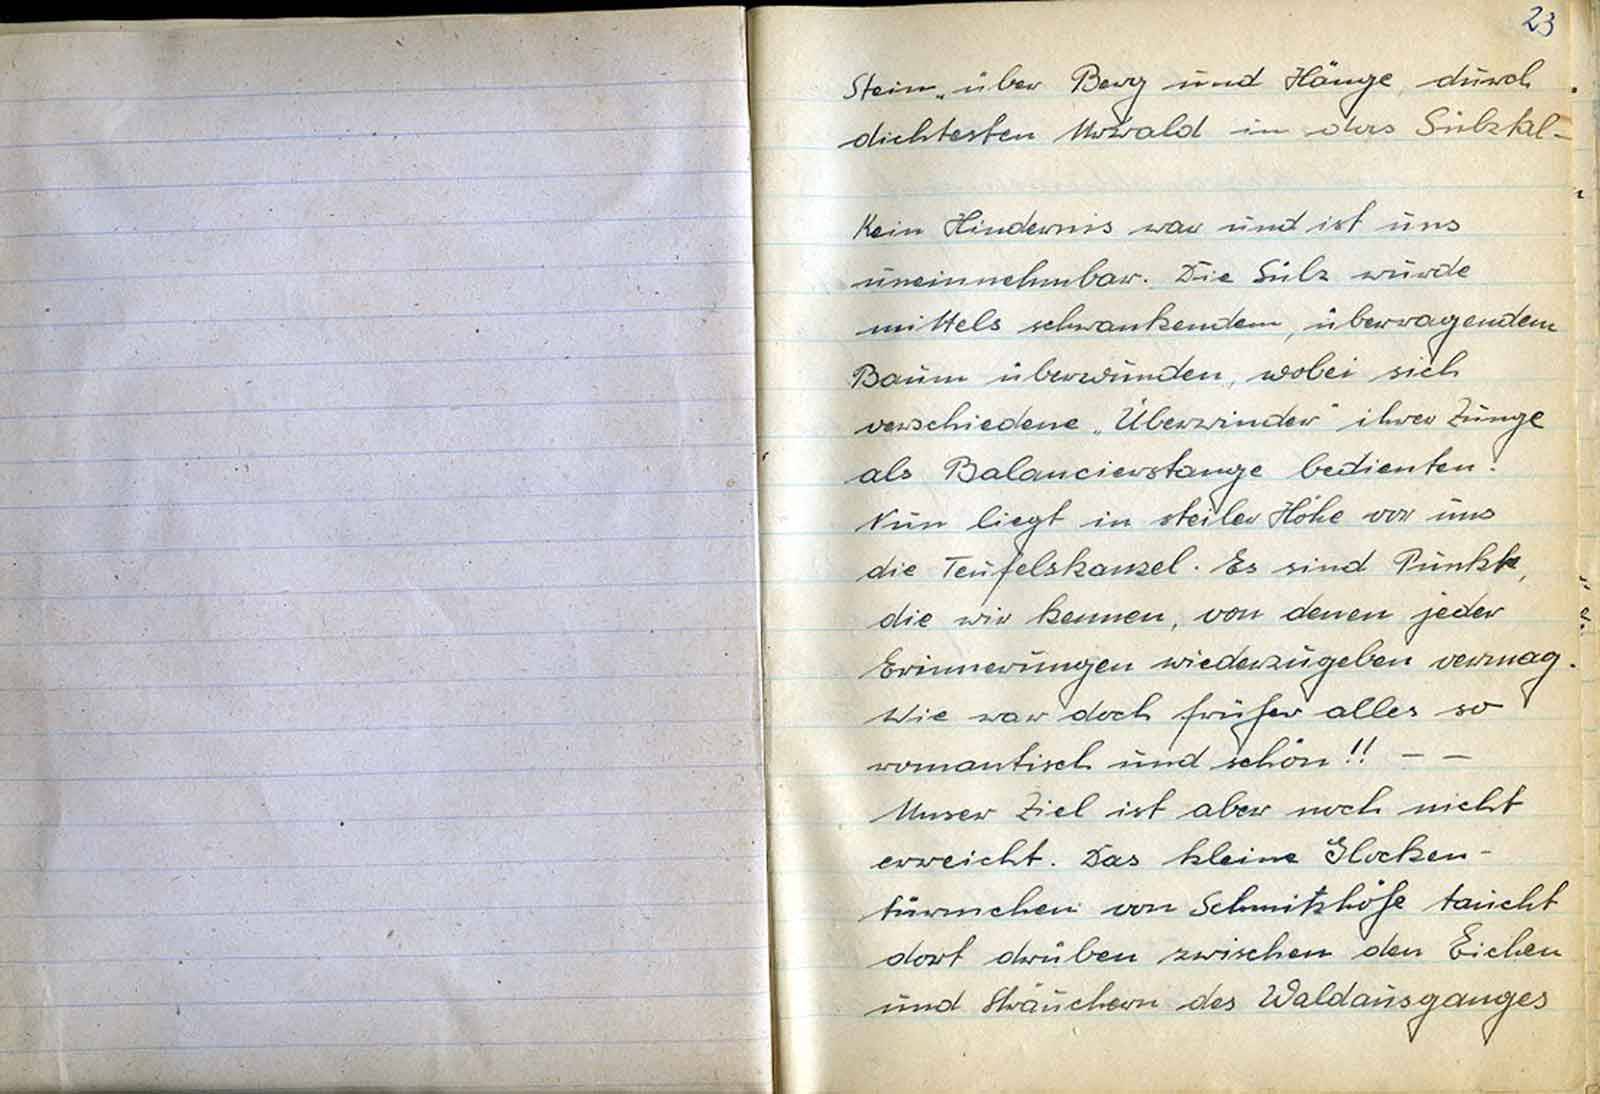 23
Stein, über Berg und Hänge, durch
dichtesten Urwald in das Sülztal-
Kein Hindernis war und ist uns
uneinnehmbar. Die Sülz wurde
mittels schwankendem, überragendem
Baum überwunden, wobei sich
verschiedene „Überwinder" ihrer Zunge
als Balancierstange bedienten.
Nun liegt in steiler Höhe vor uns
die Teufelskanzel. Es sind Punkte,
die wir kennen, von denen jeder
Erinnerungen wiederzugeben vermag.
Wie war doch früher alles so
romantisch und schön!! – –
Unser Ziel ist aber noch nicht
erreicht. Das kleine Glocken-
türmchen von Schmitzhöhe taucht
dort drüben zwischen den Eichen
und Sträuchern des Waldausganges